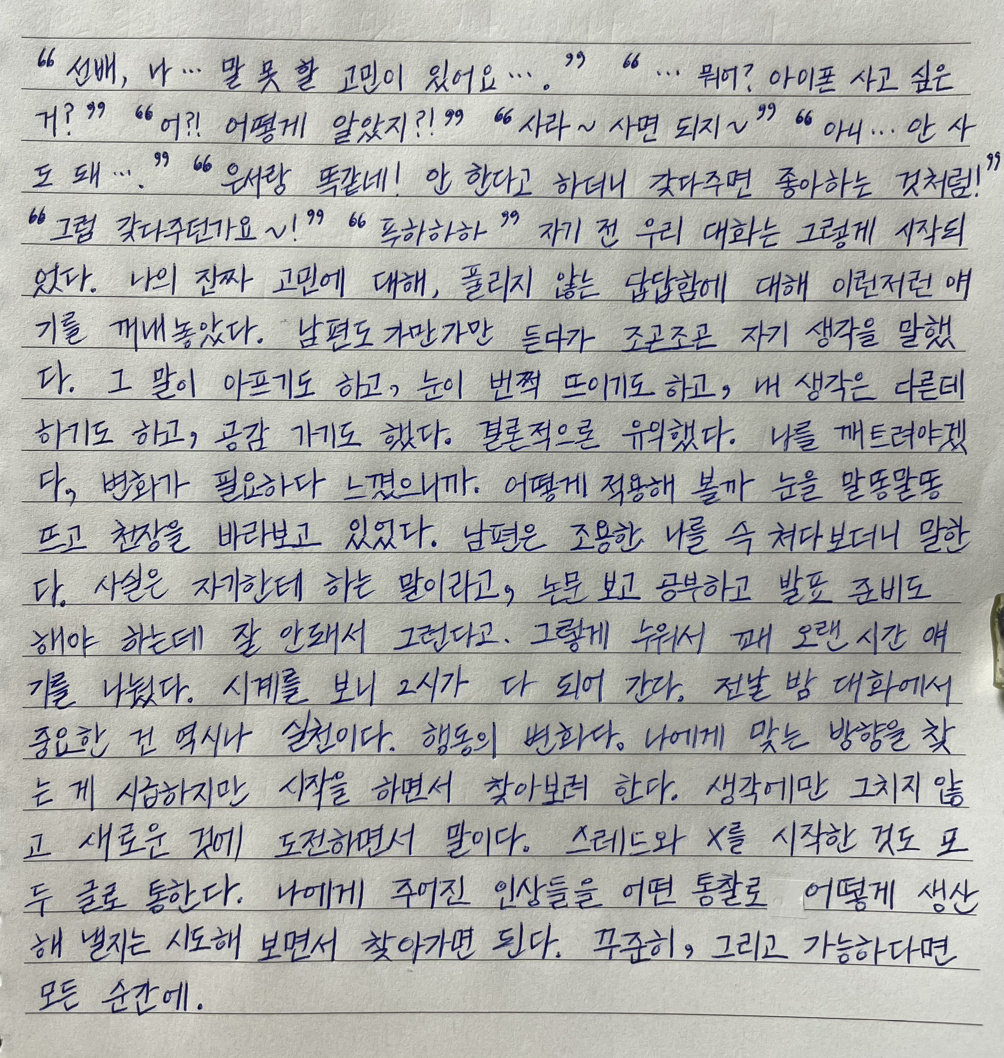 “선배, 나… 말 못 할 고민이 있어요….” “… 뭐어? 아이폰 사고 싶은
거?” “어?! 어떻게 알았지?!” “사라~ 사면 되지~” “아니… 안 사
도 돼….” “은서랑 똑같네! 안 한다고 하더니 갖다주면 좋아하는 것처럼!”
“그럼 갖다주던가요~!” “푸하하하” 자기 전 우리 대화는 그렇게 시작되
었다. 나의 진짜 고민에 대해, 풀리지 않는 답답함에 대해 이런저런 얘
기를 꺼내놓았다. 남편도 가만가만 듣다가 조곤조곤 자기 생각을 말했
다. 그 말이 아프기도 하고, 눈이 번쩍 뜨이기도 하고, 내 생각은 다른데
하기도 하고, 공감 가기도 했다. 결론적으론 유의했다. 나를 깨트려야겠
다, 변화가 필요하다 느꼈으니까. 어떻게 적용해 볼까 눈을 말똥말똥
뜨고 천장을 바라보고 있었다. 남편은 조용한 나를 슥 쳐다보더니 말한
다. 사실은 자기한테 하는 말이라고, 논문 보고 공부하고 발표 준비도
해야 하는데 잘 안돼서 그런다고. 그렇게 누워서 꽤 오랜 시간 얘
기를 나눴다. 시계를 보니 2시가 다 되어 간다. 전날 밤 대화에서
중요한 건 역시나 실천이다. 행동의 변화다. 나에게 맞는 방향을 찾
는 게 시급하지만 시작을 하면서 찾아보려 한다. 생각에만 그치지 않
고 새로운 것에 도전하면서 말이다. 스레드와 X를 시작한 것도 모
두 글로 통한다. 나에게 주어진 인상들을 어떤 통찰로 어떻게 생산
해 낼지는 시도해 보면서 찾아가면 된다. 꾸준히, 그리고 가능하다면
모든 순간에.